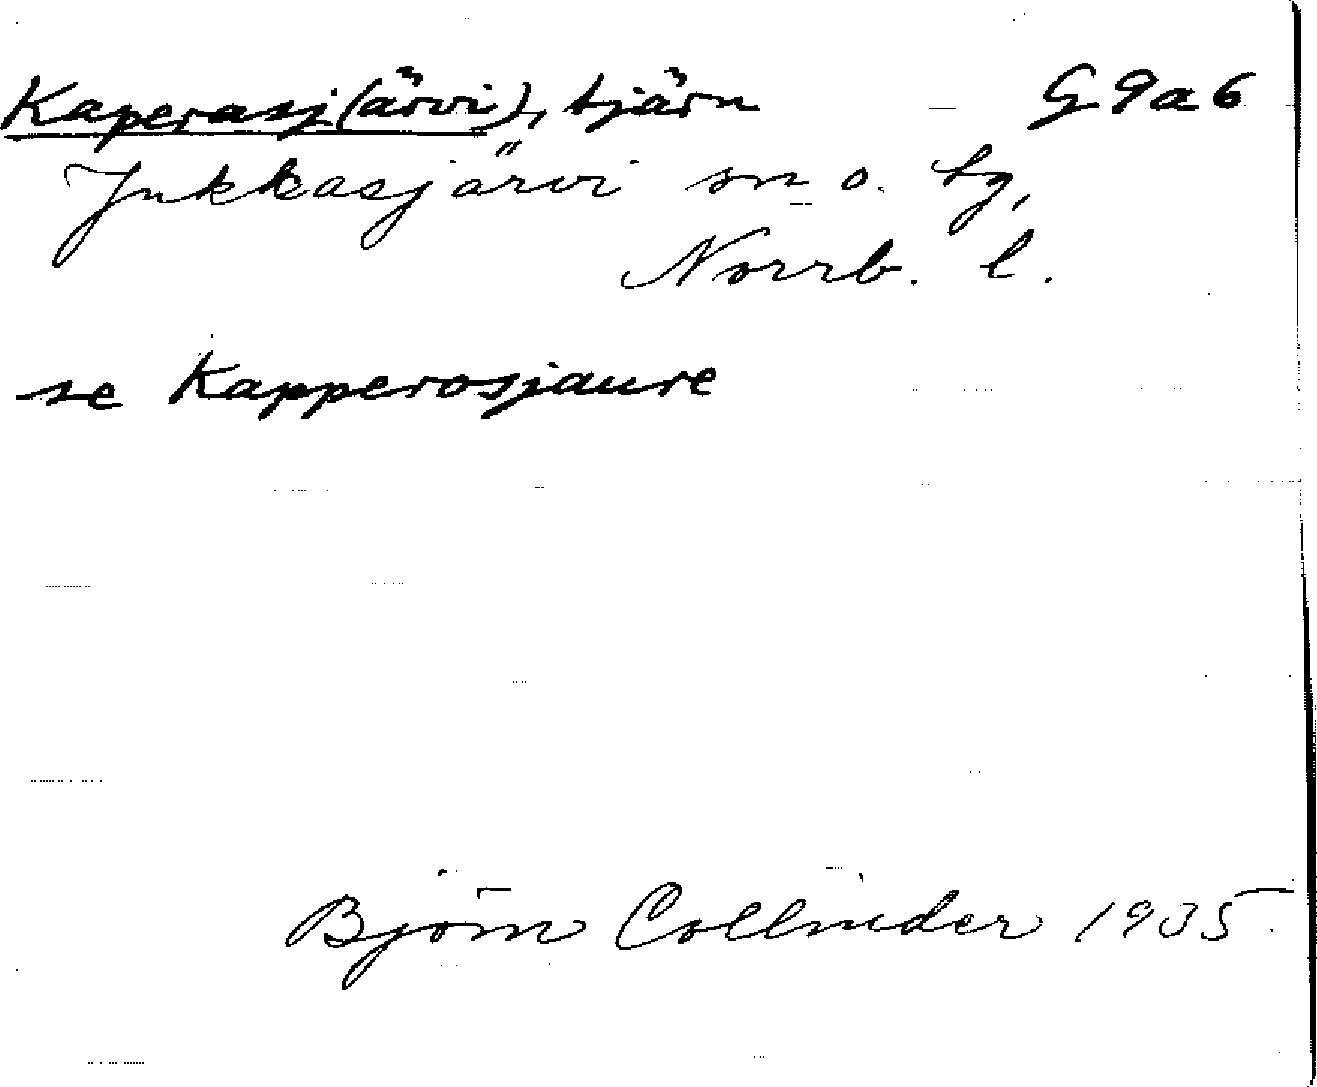 Kaperasj(ärvi), tjärn G9a6
Jukkasjärvi sn o. tg,
Norrb. l.
se Kapperosjaure
Björn Collinder 1935